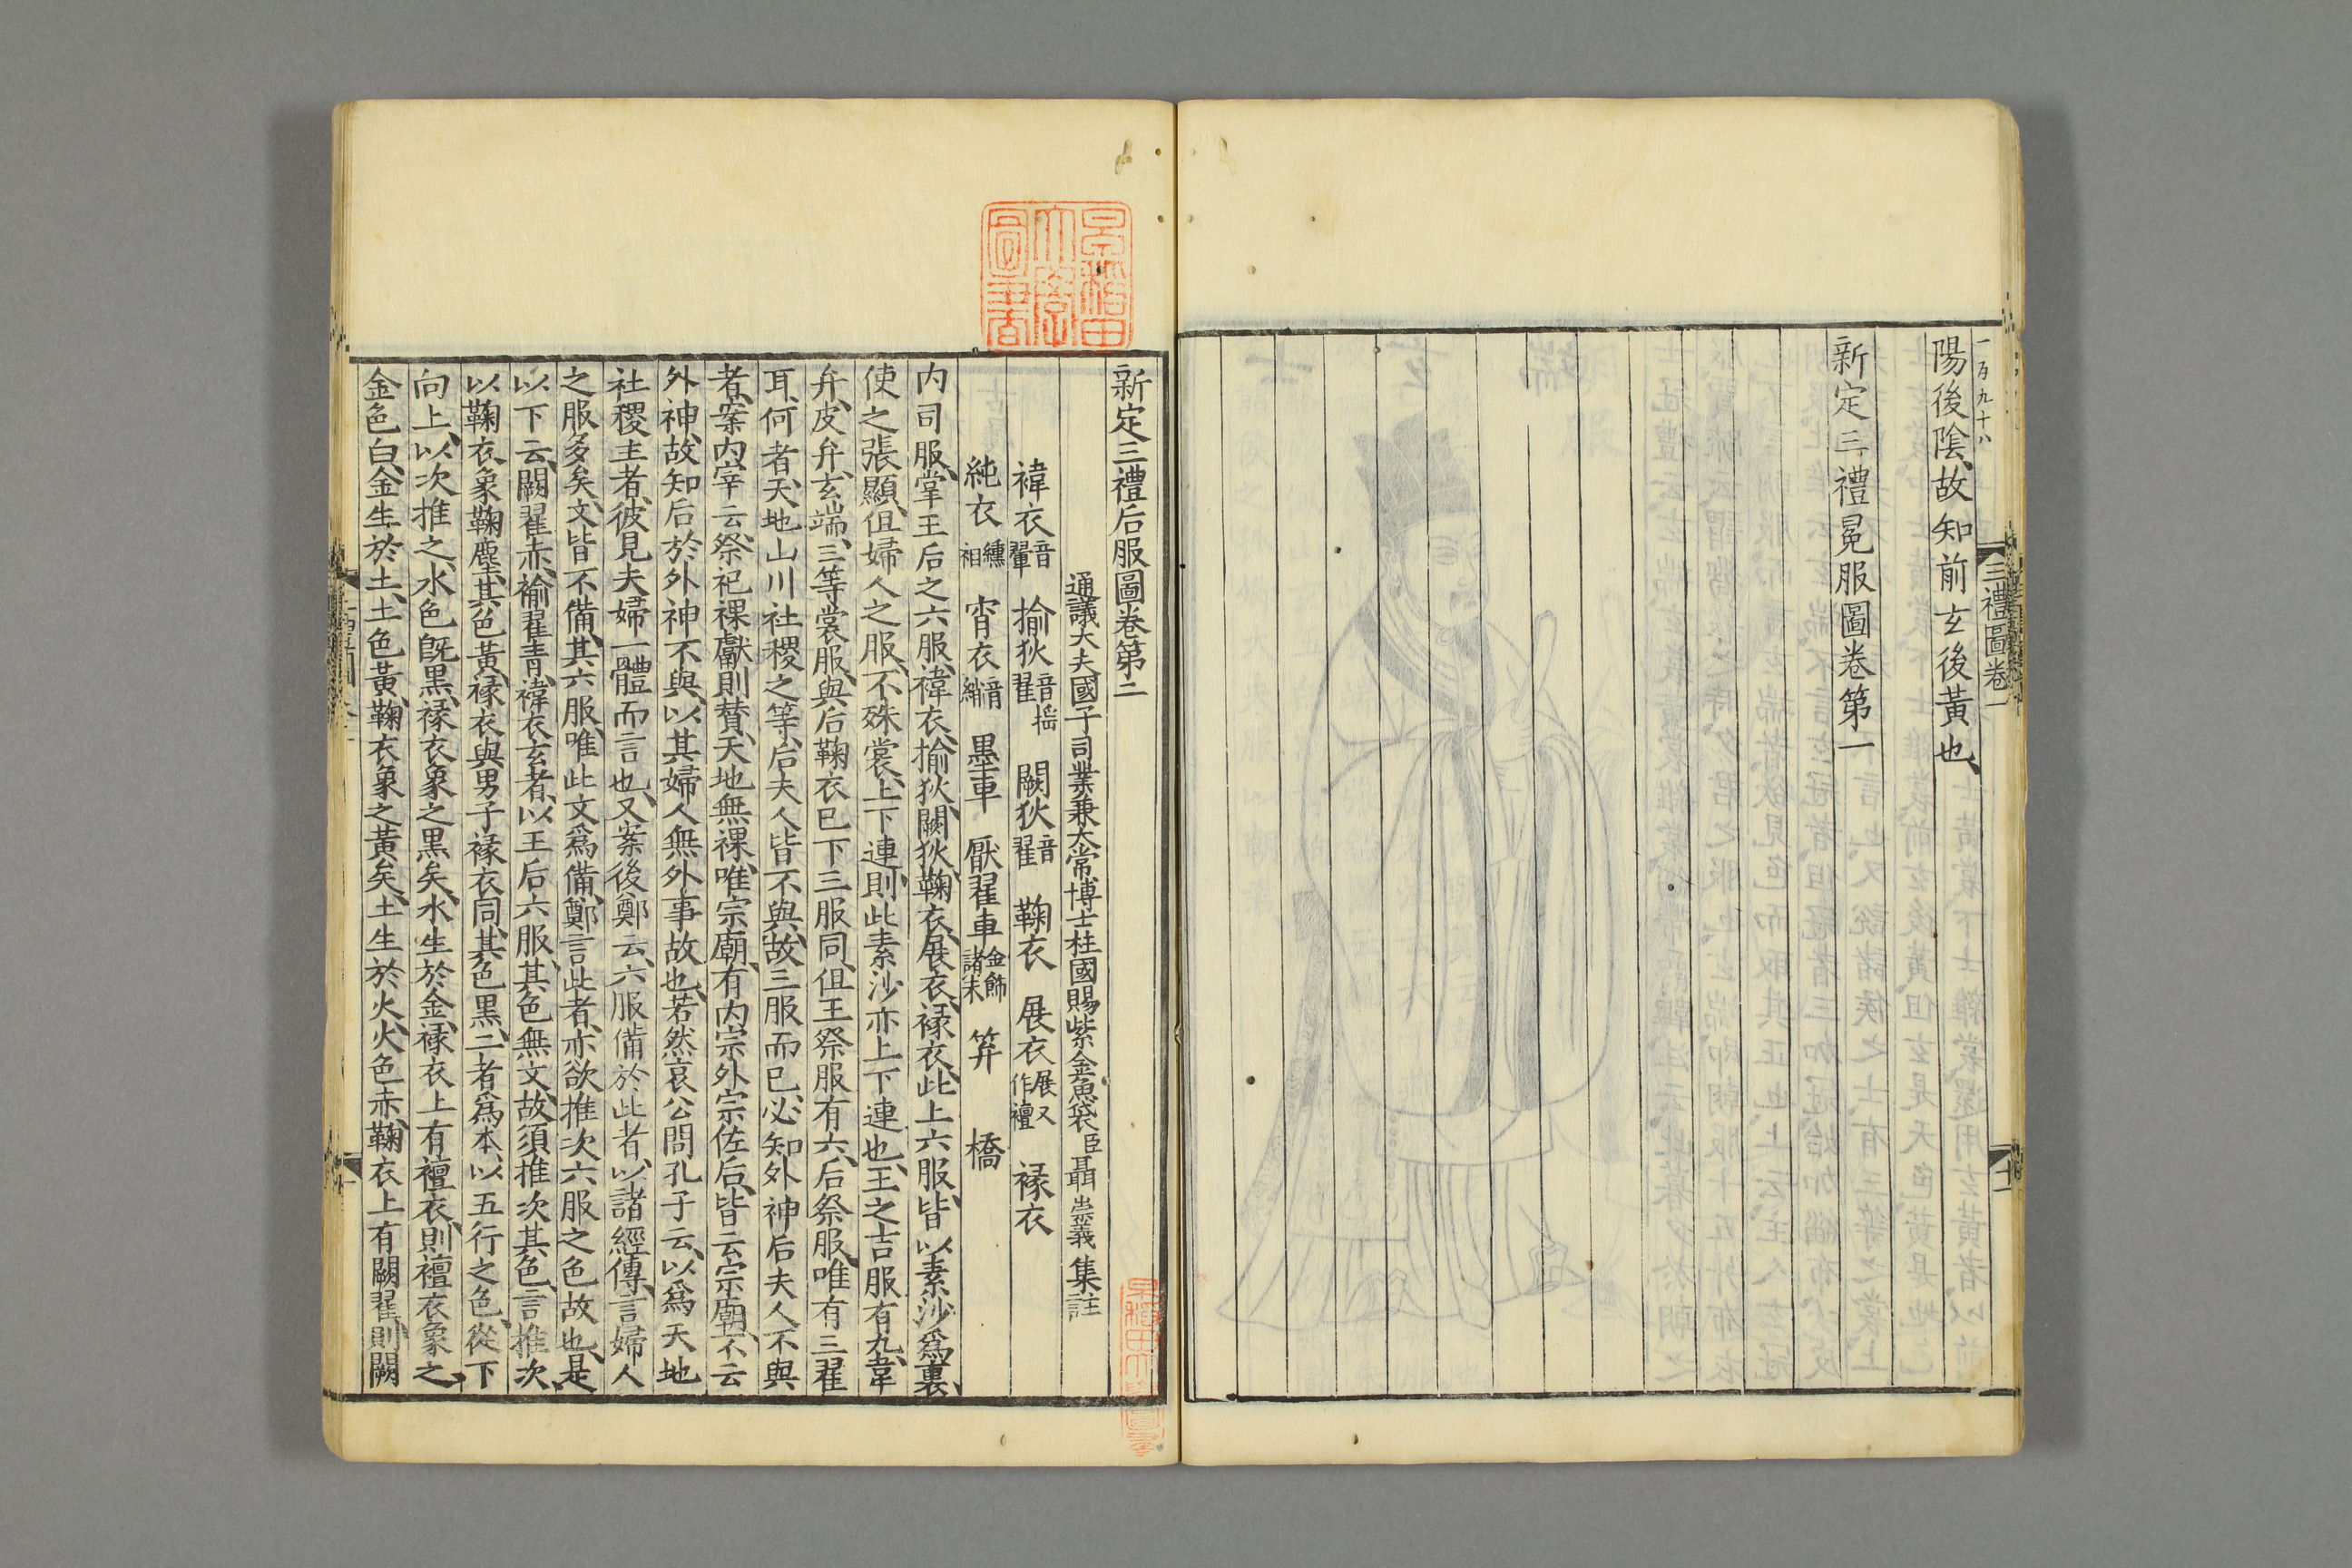 一百九十八
三禮圖卷一
陽後陰故知前玄後黃也
新定三禮冕服圖卷第一
早稲田大學圖書
新定三禮后服圖卷第二
通議大夫國子司業兼太常博士柱國賜紫金魚袋臣聶崇義集註
褘衣音翬 揄狄音搖翟 闕狄音翟 鞠衣 展衣展又作襢 褖衣
純衣纁袡 宵衣音綃 墨車 厭翟車金飾諸末 笲 橋
内司服掌王后之六服褘衣揄狄闕狄鞠衣展衣褖衣此上六服皆以素沙爲裏
使之張顯但婦人之服不殊裳上下連則此素沙亦上下連也王之吉服有九韋
弁皮弁玄端三等裳服與后鞠衣已下三服同但王祭服有六后祭服唯有三翟
耳何者天地山川社稷之等后夫人皆不與故三服而已必知外神后夫人不與
者案内宰云祭祀祼獻則賛天地無祼唯宗廟有内宗外宗佐后皆云宗廟不云
外神故知后於外神不與以其婦人無外事故也若然哀公問孔子云以爲天地
社稷主者彼見夫婦一體而言也又案後鄭云六服備於此者以諸經傳言婦人
之服多矣文皆不備其六服唯此文爲備鄭言此者亦欲推次六服之色故也是
以下云闕翟赤褕翟青褘衣玄者以王后六服其色無文故須推次其色言推次
以鞠衣象鞠塵其色黃褖衣與男子褖衣同其色黒二者爲本以五行之色從下
向上以次推之水色旣黒褖衣象之黒矣水生於金褖衣上有襢衣則襢衣象之
金色白金生於土土色黃鞠衣象之黃矣土生於火火色赤鞠衣上有闕翟則闕